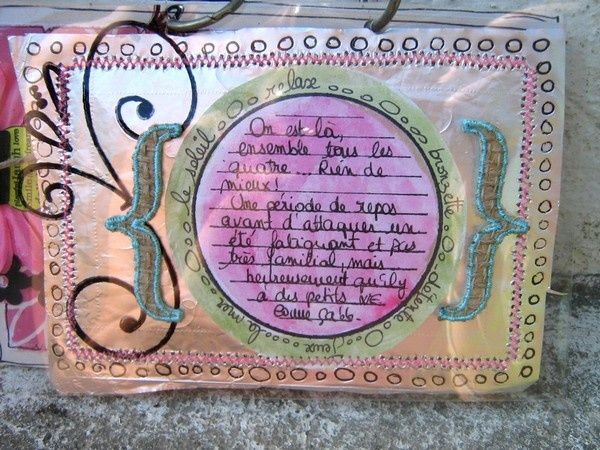 relaxe
bronzette
détente
Jeux
la mer
le soleil
On est là,
ensemble tous les
quatre... Rien de
mieux!
Une période de repos
avant d'attaquer un
été fatiguant et pas
très familial, mais
heureusement qu'il y
a des petits WE
comme ça